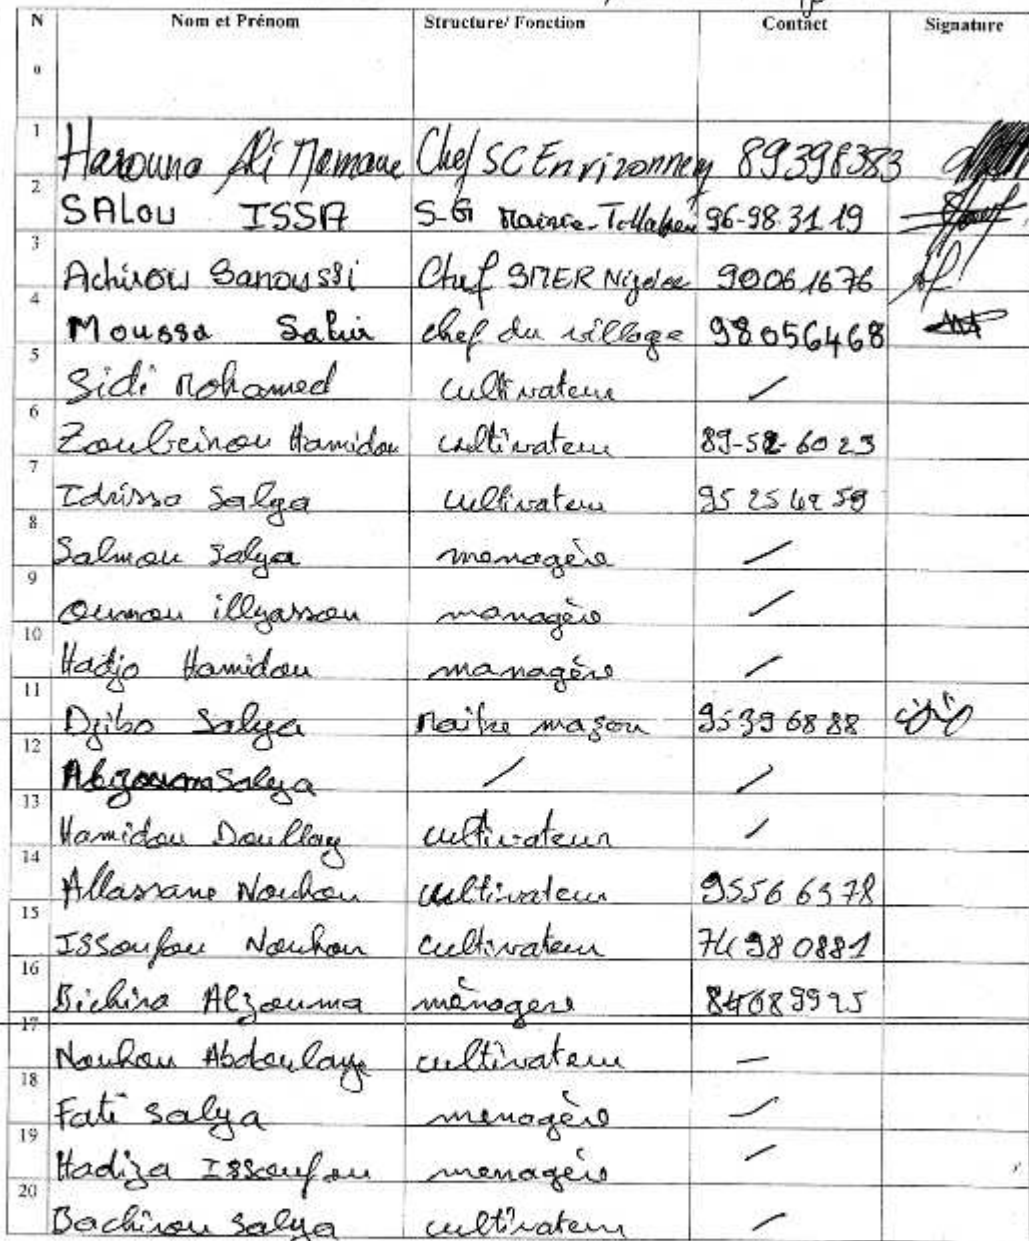 N° Nom et Prénom Structure/ Fonction Contact Signature
1 Harouna Ali Mamane Chef SC Environnem 89398383
2 SALOU ISSA S-G Mairie-Tillabéri 96-98.31.19
3 Achirou Sanoussi Chef 90061676
4 Moussa chef du village 98056468
5 Sidi Mohamed cultivateur /
6 Zoubeinou Hamidou cultivateur 89-52-6023
7 Idrissa Salya cultivateur
8 Salmou Salya menagère /
9 Oumou illyassou managère /
10 Hadjo Hamidou managère /
11 Djibo Salya Maitre maçon 95396888
12 Salya / /
13 Hamidou Doullay cultivateur /
14 Allassane Nouhou cultivateur 95566378
15 ISSoufou Nouhou cultivateur 74980881
16 Bichira Alzouma ménagere 84089995
17 Nouhou Abdoulaye cultivateur —
18 Fati salya menagère /
19 Hadiza ISSoufou menagère /
20 Bachirou salya cultivateur /